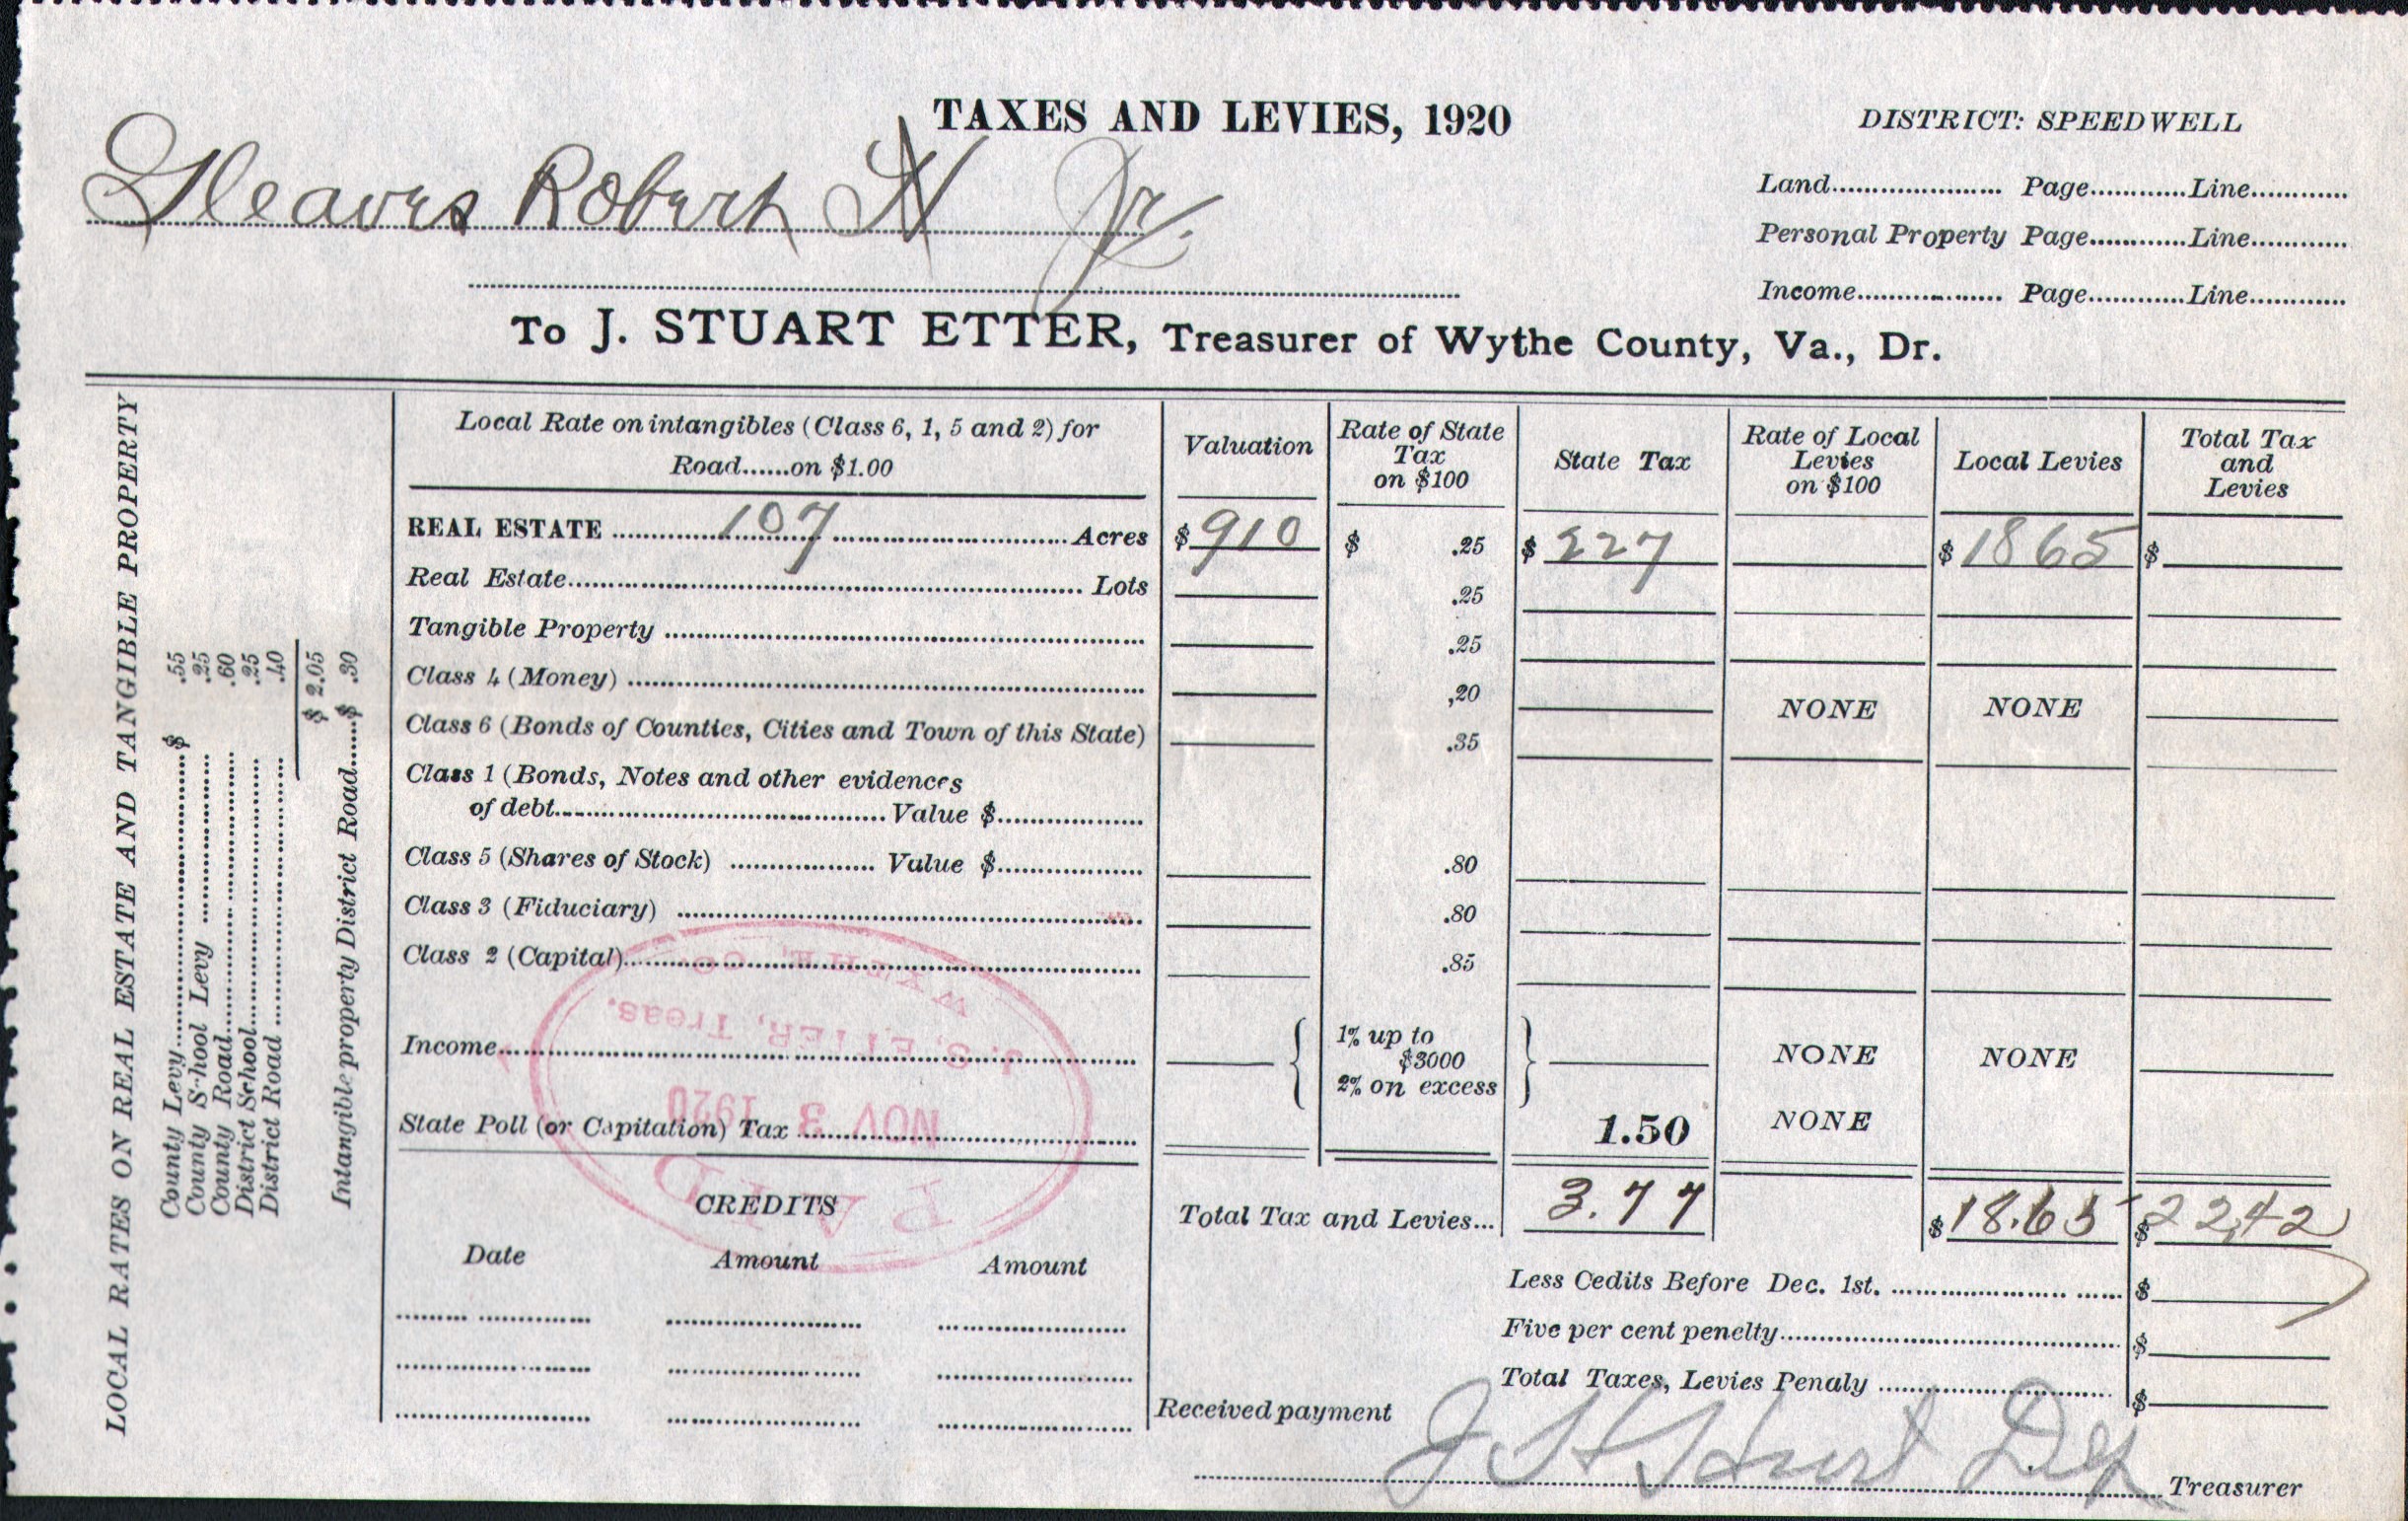 TAXES AND LEVIES, 1920
DISTRICT: SPEEDWELL
Gleaves Robert H Jr.
Land..................... Page............Line............
Personal Property Page............Line............
Income.................. Page............Line............
To J. STUART ETTER, Treasurer of Wythe County, Va., Dr.
LOCAL RATES ON REAL ESTATE AND TANGIBLE PROPERTY
County Levy........................$ .55
County S-hool Levy .................. .25
County Road........................ .60
District School........................ .25
District Road ........................ .40
$ 2.05
Intangible property District Road......$ .30
Local Rate on intangibles (Class 6, 1, 5 and 2) for
Road......on $1.00
Valuation
Rate of State Tax on $100
State Tax
Rate of Local Levies on $100
Local Levies
Total Tax and Levies
REAL ESTATE ........ 107 ........ Acres $ 910 $ .25 $ 227 $ 1865 $
Real Estate........................ Lots .25
Tangible Property ........................ .25
Class 4 (Money) ........................ ,20 NONE NONE
Class 6 (Bonds of Counties, Cities and Town of this State) .35
Class 1 (Bonds, Notes and other evidences
of debt........................ Value $..................
Class 5 (Shares of Stock) .................. Value $.................. .80
Class 3 (Fiduciary) ........................ .80
Class 2 (Capital)........................ .85
Income........................ 1% up to $3000 2% on excess NONE NONE
State Poll (or Capitation) Tax ........................ 1.50 NONE
PAID
NOV 3 1920
J. S. ETTER, Treas.
WYTHE CO.
Total Tax and Levies... 3.77 $ 18.65 $ 22,42
CREDITS
Date Amount Amount
Less Cedits Before Dec. 1st. ........................ $
Five per cent penelty........................ $
Total Taxes, Levies Penaly ........................ $
Received payment
J H Hurt Dep Treasurer